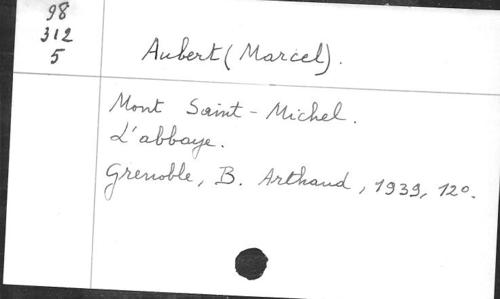 98
312
5
Aubert (Marcel).
Mont Saint-Michel.
L'abbaye.
Grenoble, B. Arthaud, 1939, 12o.